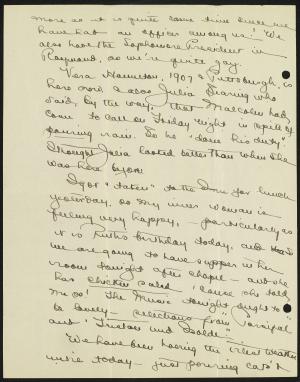 more as it is quite some time since we
have had an officer among us! We
also have the Sophomore President in
Raymond, so we're quite gay.
Vera Hamilton, 1907 & Pittsburgh, is
here now & also Julia who
said, by the way, that Malcolm had
come to call on Friday night in spite of
pouring rain. So he "done his duty"
Thought Julia looked better than when she
was here before.
I got "taken" to the Inn for lunch
yesterday, so my inner woman is
feeling very happy, - particularly as
it is Ruth's birthday today, and
we are going to have supper in her
room tonight after chapel - and she
has chicken salad, 'cause she told
me so! The Music tonight ought to
be lovely - selections from Parsifal
and "Tristan und Isolde".
We have been having the weather
in today - just pouring cats &